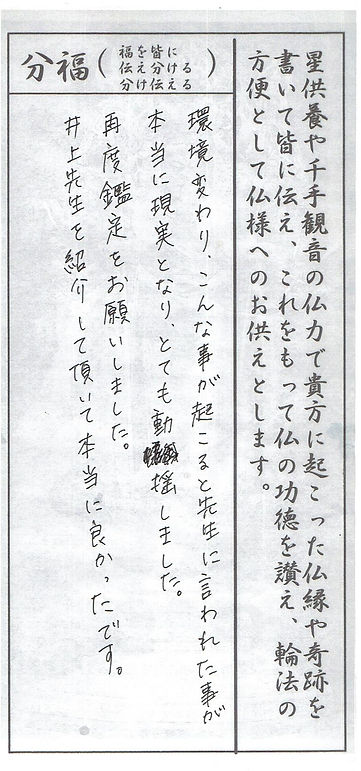 星供養や千手観音の仏力で貴方に起こった仏縁や奇跡を
書いて皆に伝え、これをもって仏の功徳を讃え、輪法の
方便として仏様へのお供えとします。
分福(福を皆に
伝え分ける
分け伝える)
環境変わり、こんな事が起こると先生に言われた事が
本当に現実となり、とても動揺しました。
再度鑑定をお願いしました。
井上先生を紹介して頂いて本当に良かったです。